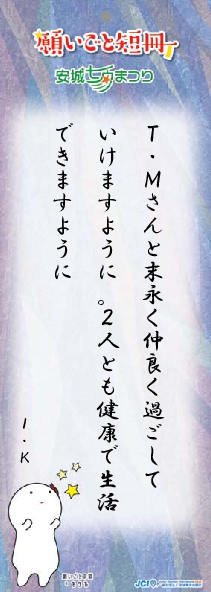 願いごと短冊
安城七夕まつり
T・Mさんと末永く仲良く過ごして
いけますように。2人とも健康で生活
できますように
I・K
願いごと短冊
JCI